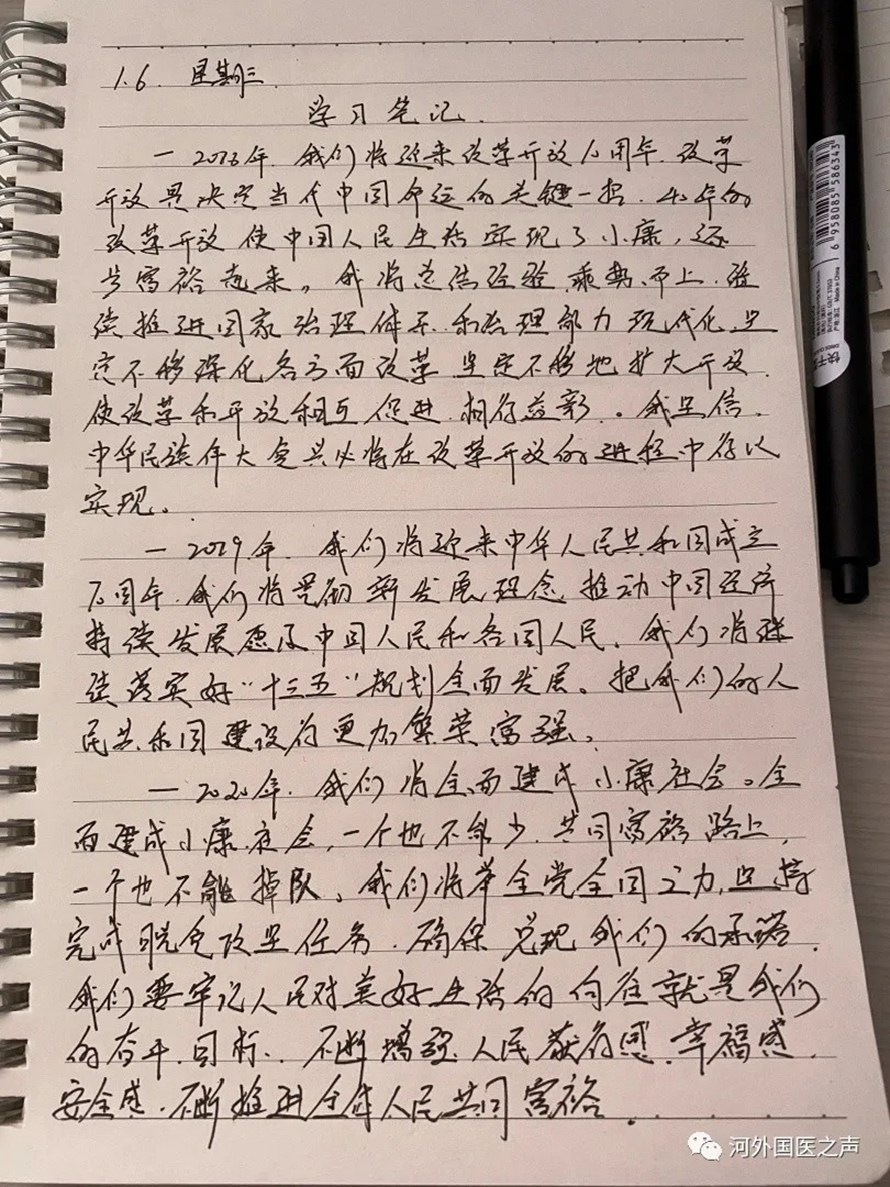 1.6. 星期三
学习笔记.
一 2018年. 我们将迎来改革开放40周年. 改革
开放是决定当代中国命运的关键一招. 40年的
改革开放 使中国人民生活实现了小康, 逐
步富裕起来。我将总结经验 乘势而上. 继
续推进国家治理体系和治理能力现代化 坚
定不移深化各方面改革 坚定不移地扩大开放.
使改革和开放相互促进 相得益彰。我坚信.
中华民族伟大复兴必将在改革开放的进程中得以
实现。
一 2019年. 我们将迎来中华人民共和国成立
70周年. 我们将贯彻新发展理念 推动中国经济
持续发展惠及中国人民和各国人民. 我们将继
续落实好“十三五”规划全面发展。把我们的人
民共和国建设得更加繁荣富强。
一 2020年. 我们将全面建成小康社会。全
面建成小康社会, 一个也不能少. 共同富裕路上,
一个也不能掉队。我们将举全党全国之力, 坚持
完成脱贫攻坚任务. 确保兑现我们的承诺.
我们要牢记人民对美好生活的向往就是我们
的奋斗目标. 不断增强人民获得感. 幸福感.
安全感. 不断推进全体人民共同富裕.
河外国医之声
6 958085 586343
Made in China